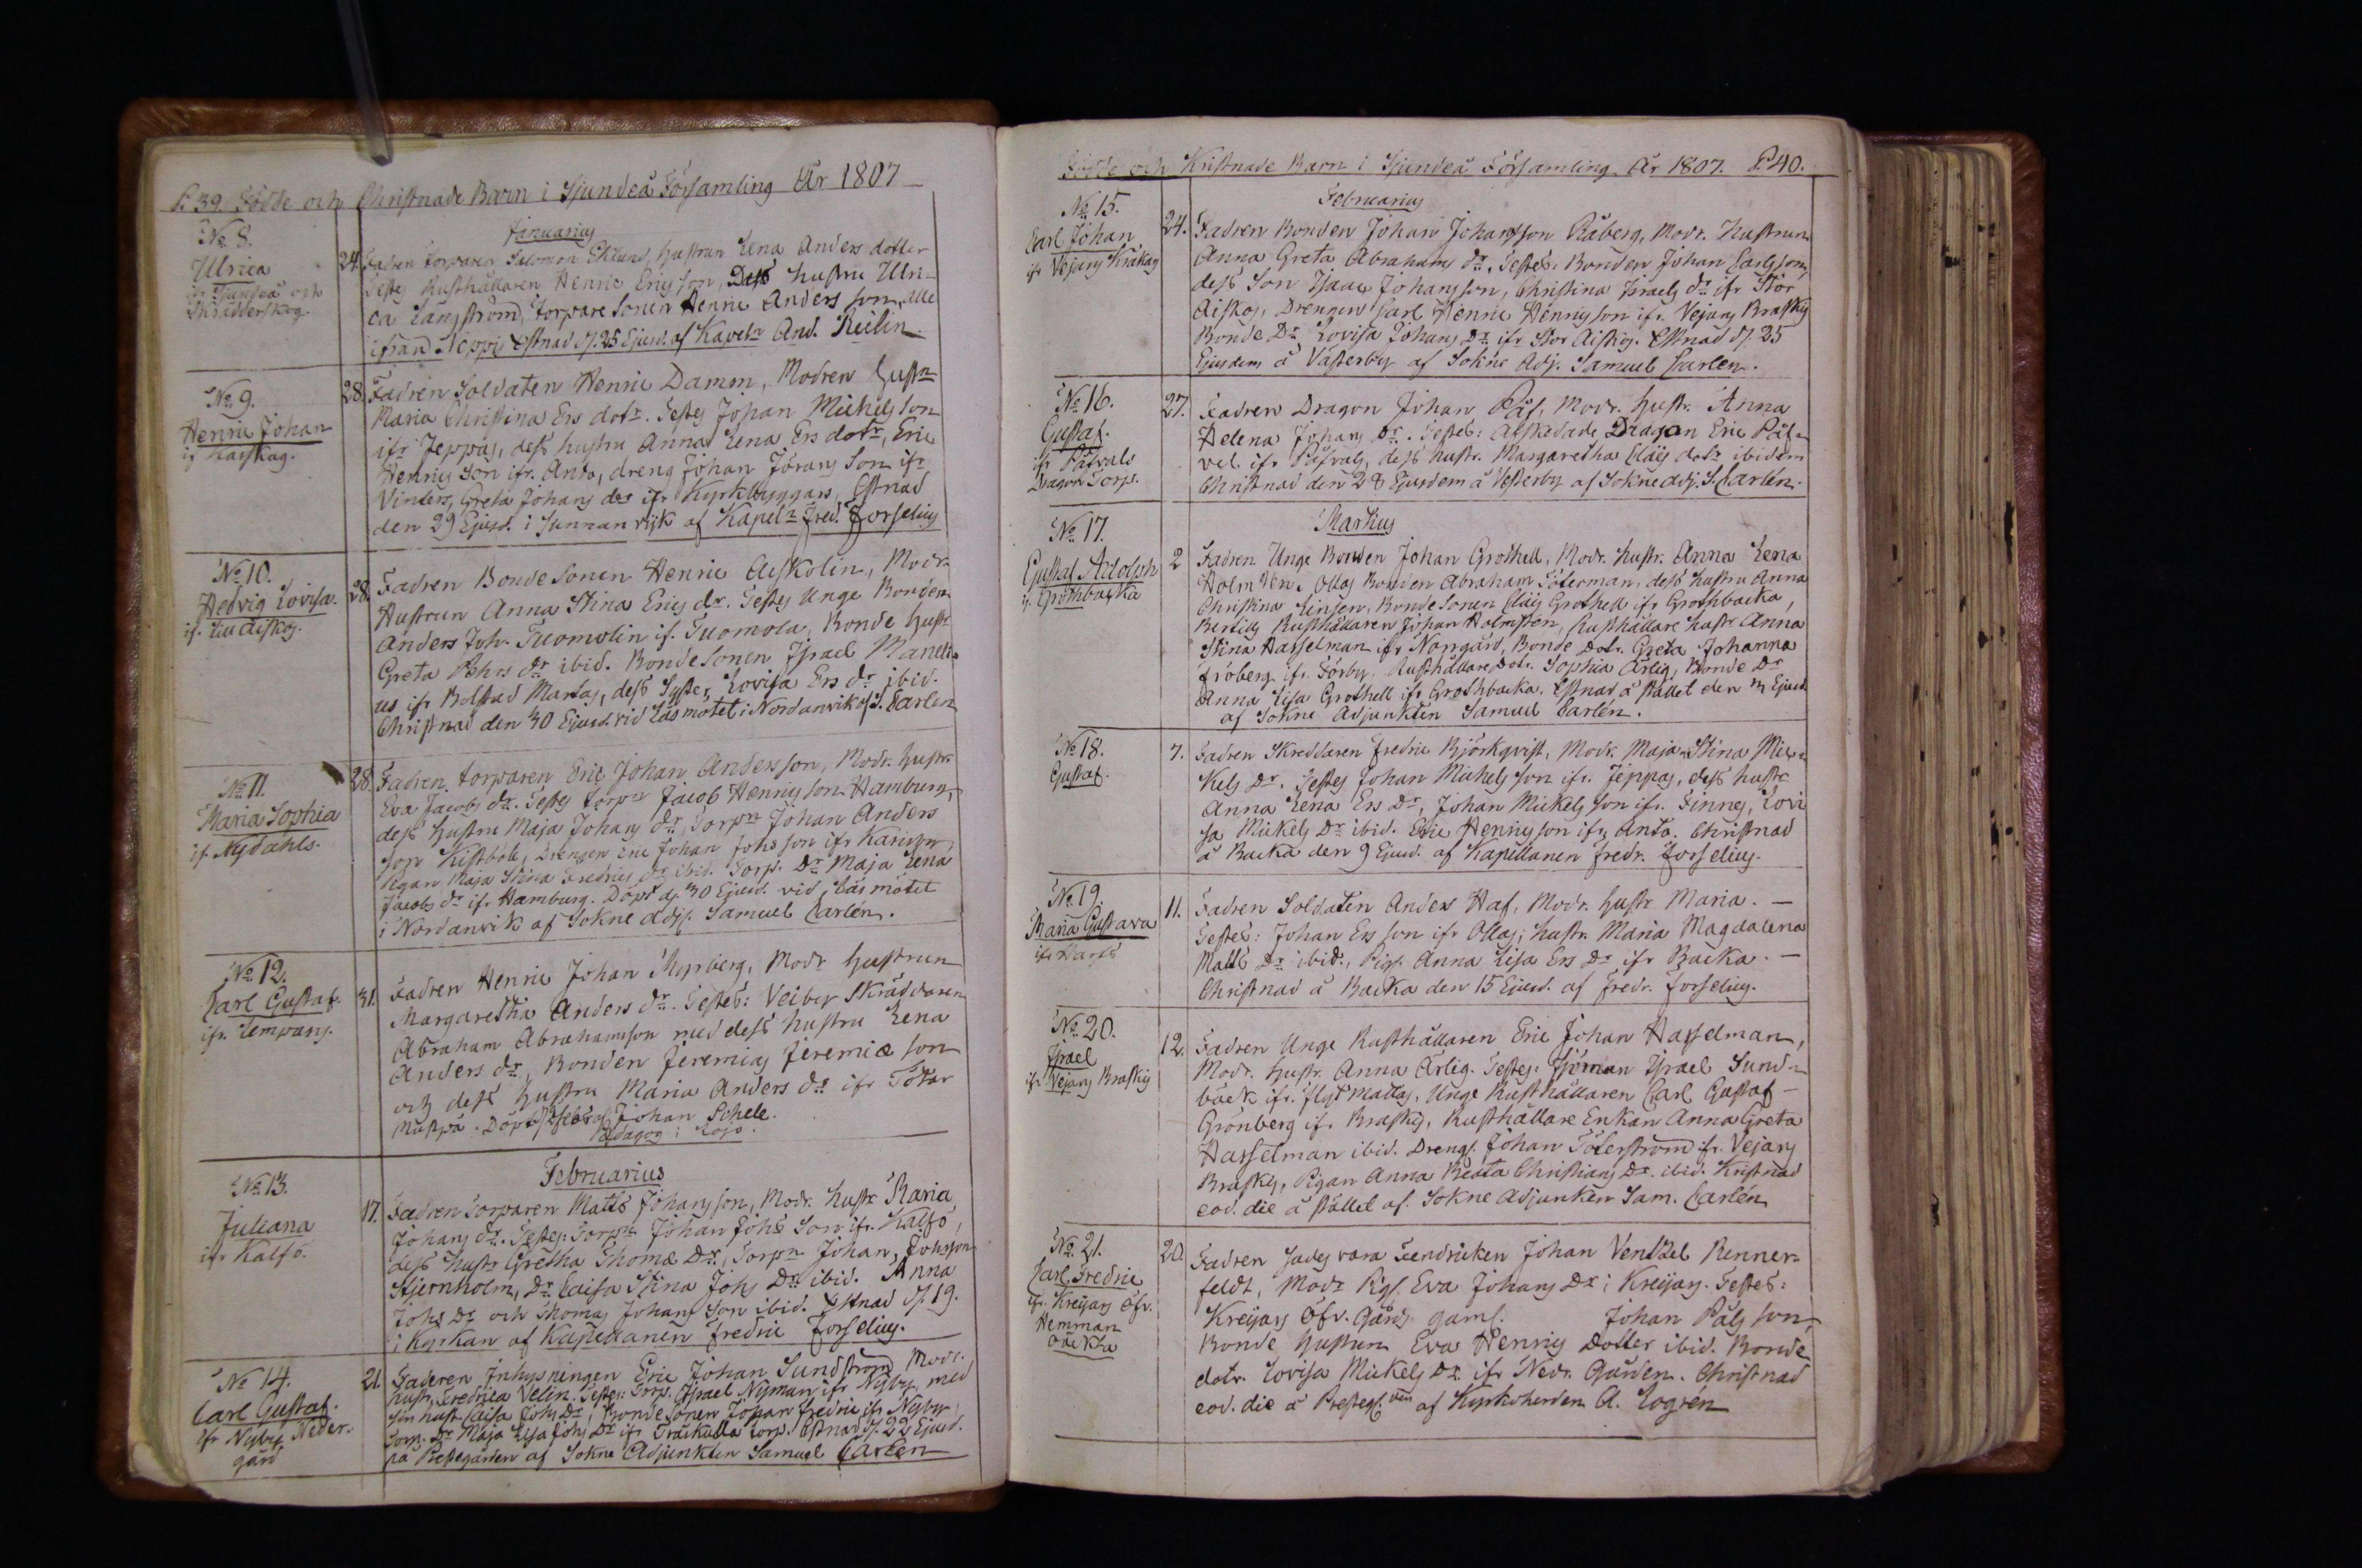 P. 39. Födde och Christnade Barn i Sjundeå Församling År 1807
Januarius
No 8.
Ulrica
ifr Sjundeå och
Skrädderskog.
24. Fadren Torparen Salomon Eklund, hustrun Lena Anders dotter
Testes Rusthållaren Henric Ericsson, Dess hustru Ulri-
ca Långström, Torpare Sonen Henric Anders son, alle
ifrån Noppis Cstnad d. 25 Ejusd. af Kapeln And.
No 9.
Henric Johan
28. Fadren Soldaten Henric Damm, Modren Hustn
Maria Christina Ers dotr. Testes Johan Michels son
ifr Jeppas, dess hustru Anna Lena Ers dotr, Eric
Henrics Son ifr. Anto, dreng Johan Jörans Son ifr
Vinters, Greta Johans dr ifr Kyrkbyggars, Cstnad
den 29 Ejusd. i Sunnanvijk af Kapeln Fred. Forselius
No 10.
Hedvig Lovisa.
28. Fadren Bonde Sonen Henric Aiskolin, Modr.
Hustrun Anna Stina Erics dr. Testes Unge Bonden
Anders Joh. Tuomolin if. Tuomola, Bonde hustr
Greta Pehrs dr ibid. Bonde Sonen Israel Maneli-
us ifr Bolstad Martas, dess Syster Lovisa Ers dr ibid.
Christnad den 30 Ejusd. vid Läsmötet i Nordanvik af S. Carlen
No 11.
Maria Sophia
if. Nydahls.
28. Fadren torparen Eric Johan Andersson, Modr. hustr.
Eva Jacobs dr. Testes torpn Jacob Henricsson Hamburg,
dess hustru Maja Johans dr, Torpn Johan Anders
son Kistbole, Drengen Eric Johan Johs son ifr
Pigan Maja Stina Fredrics dr ibid. Torp. Dr Maja Lena
Jacobs dr ifr Hamburg. Döpt d. 30 Ejusd. vid Läsmötet
i Nordanvik af Sokne Adj. Samuel Carlén.
No 12.
Carl Gustaf.
ifr. Lempans.
31. Fadren Henric Johan Myrberg, Modr hustrun
Margaretha Anders dr. Testes: Veiby Skräddaren
Abraham Abrahamsson med dess hustru Lena
Anders dr, Bonden Jeremias Jeremiæ son
och dess hustru Maria Anders dr ifr Tötar
Nuspå. Döpt af Johan Schele.
Pedagog i Lojo.
Februarius
No 13.
Juliana
ifr Kalfö.
17. Fadren Torparen Matts Johansson, Modr. hustr Maria
Johans dr. Testes: Torpn Johan Johs Son ifr. Kalfö,
dess hustr Gretha Thomæ Dr, Torpn Johan Johsson
Stjernholm, Dr Caisa Stina Johs Dr ibid. Anna
Johs Dr och Thomas Johans son ibid. Cstnad d. 19.
i Kyrkan af Kapellanen Fredric Forselius.
No 14.
Carl Gustaf.
ifr Nyby Neder-
gård
21. Faderen Inhysningen Eric Johan Sundström Modr.
hustr. Fredrica Velin. Testes: Torp. Israel Nyman ifr Nyby med
sin hust. Caisa Johs Dr, Bonde Sonen Johan Fredric ifr Nyby,
Torp. Dr Maja Lisa Johs Dr ifr Träskulla torp. Cstnad d. 22 Ejusd.
på Prestegården af Sokne Adjunkten Samuel Carlen
Födde och Kristnade Barn i Sjundeå Församling År 1807. P. 40.
Februarius
No 15.
Carl Johan
ifr Vejans Kråkas
24. Fadren Bonden Johan Johansson Råberg, Modr. Hustrun
Anna Greta Abrahams dr. Testes: Bonden Johan Carlsson,
dess Son Isaac Johansson, Christina Israels dr ifr Stor
Aiskog, Drengen Carl Henric Henricsson ifr. Vejans Braskis
Bonde Dr Lovisa Johans Dr ifr Stor Aiskog. Cstnad d. 25
Ejusdem å Västerby af Sokne Adj. Samuel Carlen.
No 16.
Gustaf.
ifr Påfvals
Dragon Torp.
27. Fadren Dragon Johan Påf, Modr. hustr. Anna
Helena Johans Dr. Testes: Afskedade Dragon Eric Påf-
vel ifr Påfvals, dess hustr. Margaretha Claës dotr ibidem
Christnad den 28 Ejusdem å Vesterby af Sokne adj. S. Carlén.
Martius
No 17.
Gustaf Adolph
if. Grothbacka
2 Fadren Unge Bonden Johan Grothell, Modr. hustr. Anna Lena
Holmsten, Ollas Bonden Abraham Söterman, dess hustru Anna
Christina Linsen, Bonde Sonen Claës Grothell ifr Grothbacka,
Bertills Rusthållaren Johan Holmsten, Rusthållare hustr Anna
Stina Hasselman ifr Norrgård, Bonde dotr. Greta Johanna
Fröberg ifr. Förby, Rusthållare Dotr. Sophia Ärlig, Bonde Dr
Anna Lisa Grothell ifr Grothbacka, Cstnad å stället den 3 Ejusd.
af Sokne Adjunkten Samuel Carlén.
No 18.
Gustaf.
7. Fadren Skreddaren Fredric Björkqvist, Modr. Maja Stina Mic-
kels Dr. Testes Johan Michels son ifr. Jeppas, dess hustr
Anna Lena Ers Dr, Johan Mickels son ifr. Finnes, Lovi
sa Mickels Dr ibid. Eric Henricsson ifr. Anto. Christnad
å Backa den 9 Ejusd. af Kapellanen Fredr. Forselius.
No 19.
Maria Gustava
11. Fadren Soldaten Anders Haf, Modr. hustr Maria. —
Testes: Johan Ers son ifr Ollas, hustr. Maria Magdalena
Matts Dr ibid., Pig. Anna Lisa Ers Dr ifr Backa. —
Christnad å Backa den 15 Ejusd. af Fredr. Forselius.
No 20.
Israel
ifr Vejans Braskis
12. Fadren Unge Rusthållaren Eric Johan Hasselman,
Modr. hustr. Anna Ärlig. Testes: Sjöman Israel Sund-
bäck ifr. Flyt Mattas, Unge Rusthållaren Carl Gustaf
Grönberg ifr Braskis, Rusthållare Enkan Anna Greta
Hasselman ibid. Dreng. Johan Söterström ifr. Vejans
Braskis, Pigan Anna Beata Christians Dr. ibid. Kristnad
eod. die å stället af Sokne Adjunkten Sam. Carlén
No 21.
Carl Fredric
ifr. Kreijars Öfv.
Hemman
oäckta
20. Fadren sades vara Fendricken Johan Ventzel Renner-
feldt, Modr Pig. Eva Johans Dr i Kreijars. Testes:
Kreijars Öfv. Gårds gaml. Johan Påls son,
Bonde hustrun Eva Henrics Dotter ibid. Bonde
dotr. Lovisa Mickels Dr ifr Nedr. Gården. Christnad
eod. die å Presteg.den af Kyrkoherden A. Logrén